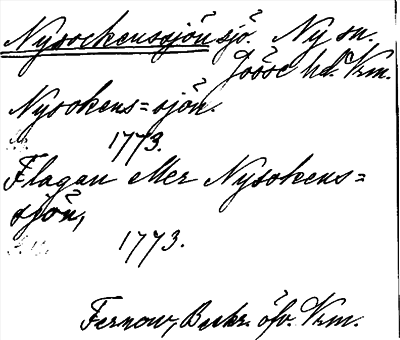 Nysockensjön sjö. Ny sn.
Jösse hd. Vrm.
Nysokens=sjön.
1773.
Flagan eller Nysokens=
sjön,
1773.
Fernow, Beskr. öfv. Vrm.